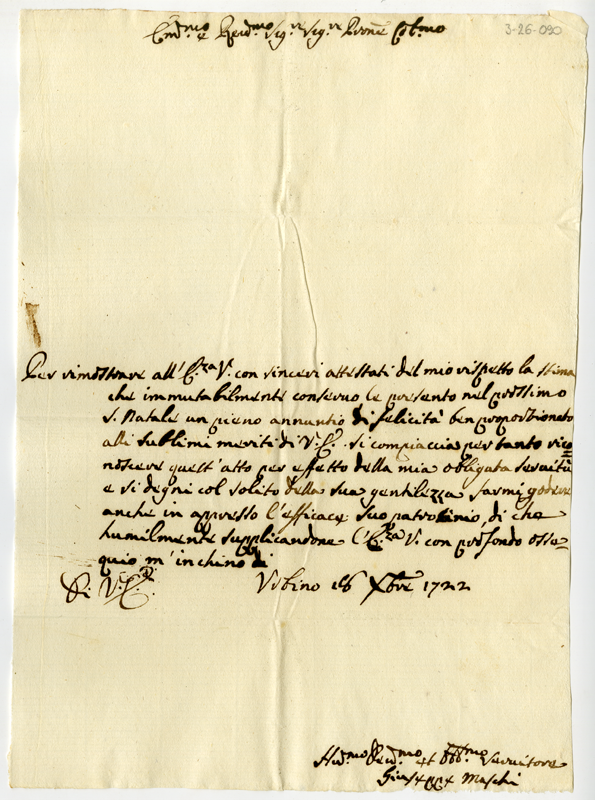 Em.mo e Reu.mo Sig.re Sig.re Prone Col.mo
3-26-090
Per rimostrare all'E.za V. con sinceri attestati del mio rispetto la stima
che immutabilmente conseruo le presento nel prossimo
S. Natale un pieno annuntio di felicità ben proporzionato
alli sublimi meriti di V. E. si compiaccia per tanto rico=
noscere quest'atto per effetto della mia obligata seruitù
e si degni col solito della sua gentilezza farmi godere
anche in appresso l'efficace suo patrocinio, di che
humilmente supplicandone l'E.za V. con profondo osse=
quio m'inchino di
Di V. E.
Vrbino 16 Xbre 1722
Hu.mo Deu.mo et Obb.mo Seruitore
Giuseppe Maschi